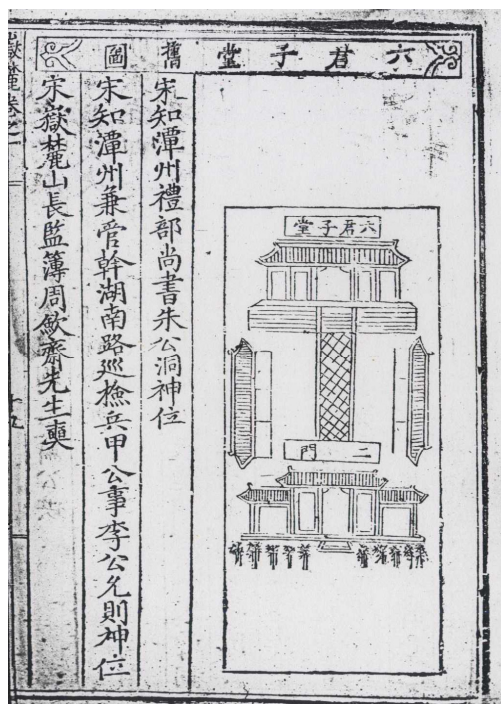 六君子堂舊圖
六君子堂
二門
宋知潭州禮部尚書朱公洞神位
宋知潭州兼管幹湖南路巡檢兵甲公事李公允則神位
宋嶽麓山長監簿周歛齋先生奭
嶽麓卷之一
十五